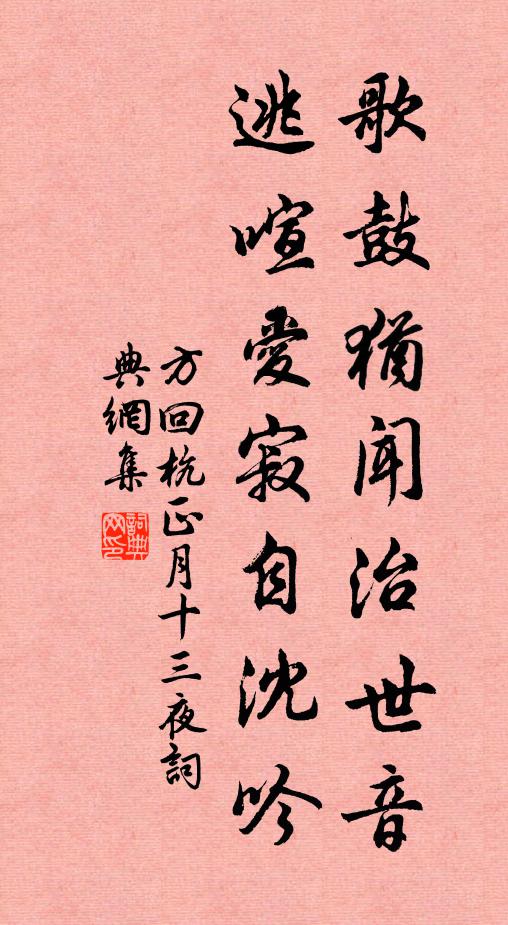 歌鼓猶聞治世音
逃喧愛寂自沈吟
方回杭正月十三夜詞
典網集
詞典网印